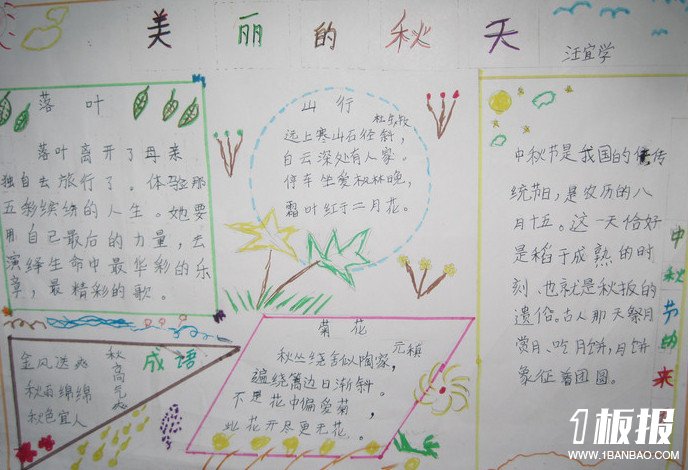 美丽的秋天
汪宜学
落叶
落叶离开了母亲
独自去旅行了。体验那
五彩缤纷的人生。她要
用自己最后的力量,去
演绎生命中最华彩的乐
章,最精彩的歌。
山行
杜牧
远上寒山石径斜,
白云深处有人家。
停车坐爱枫林晚,
霜叶红于二月花。
中秋节的来
中秋节是我国的传
统节日,是农历的八
月十五。这一天恰好
是稻子成熟的时
刻、也就是秋报的
遗俗。古人那天祭月
赏月、吃月饼,月饼
象征着团圆。
成语
金风送爽
秋雨绵绵
秋色宜人
秋高气爽
菊花
元稹
秋丛绕舍似陶家,
遍绕篱边日渐斜。
不是花中偏爱菊,
此花开尽更无花。
1板报
WWW.1BANBAO.COM